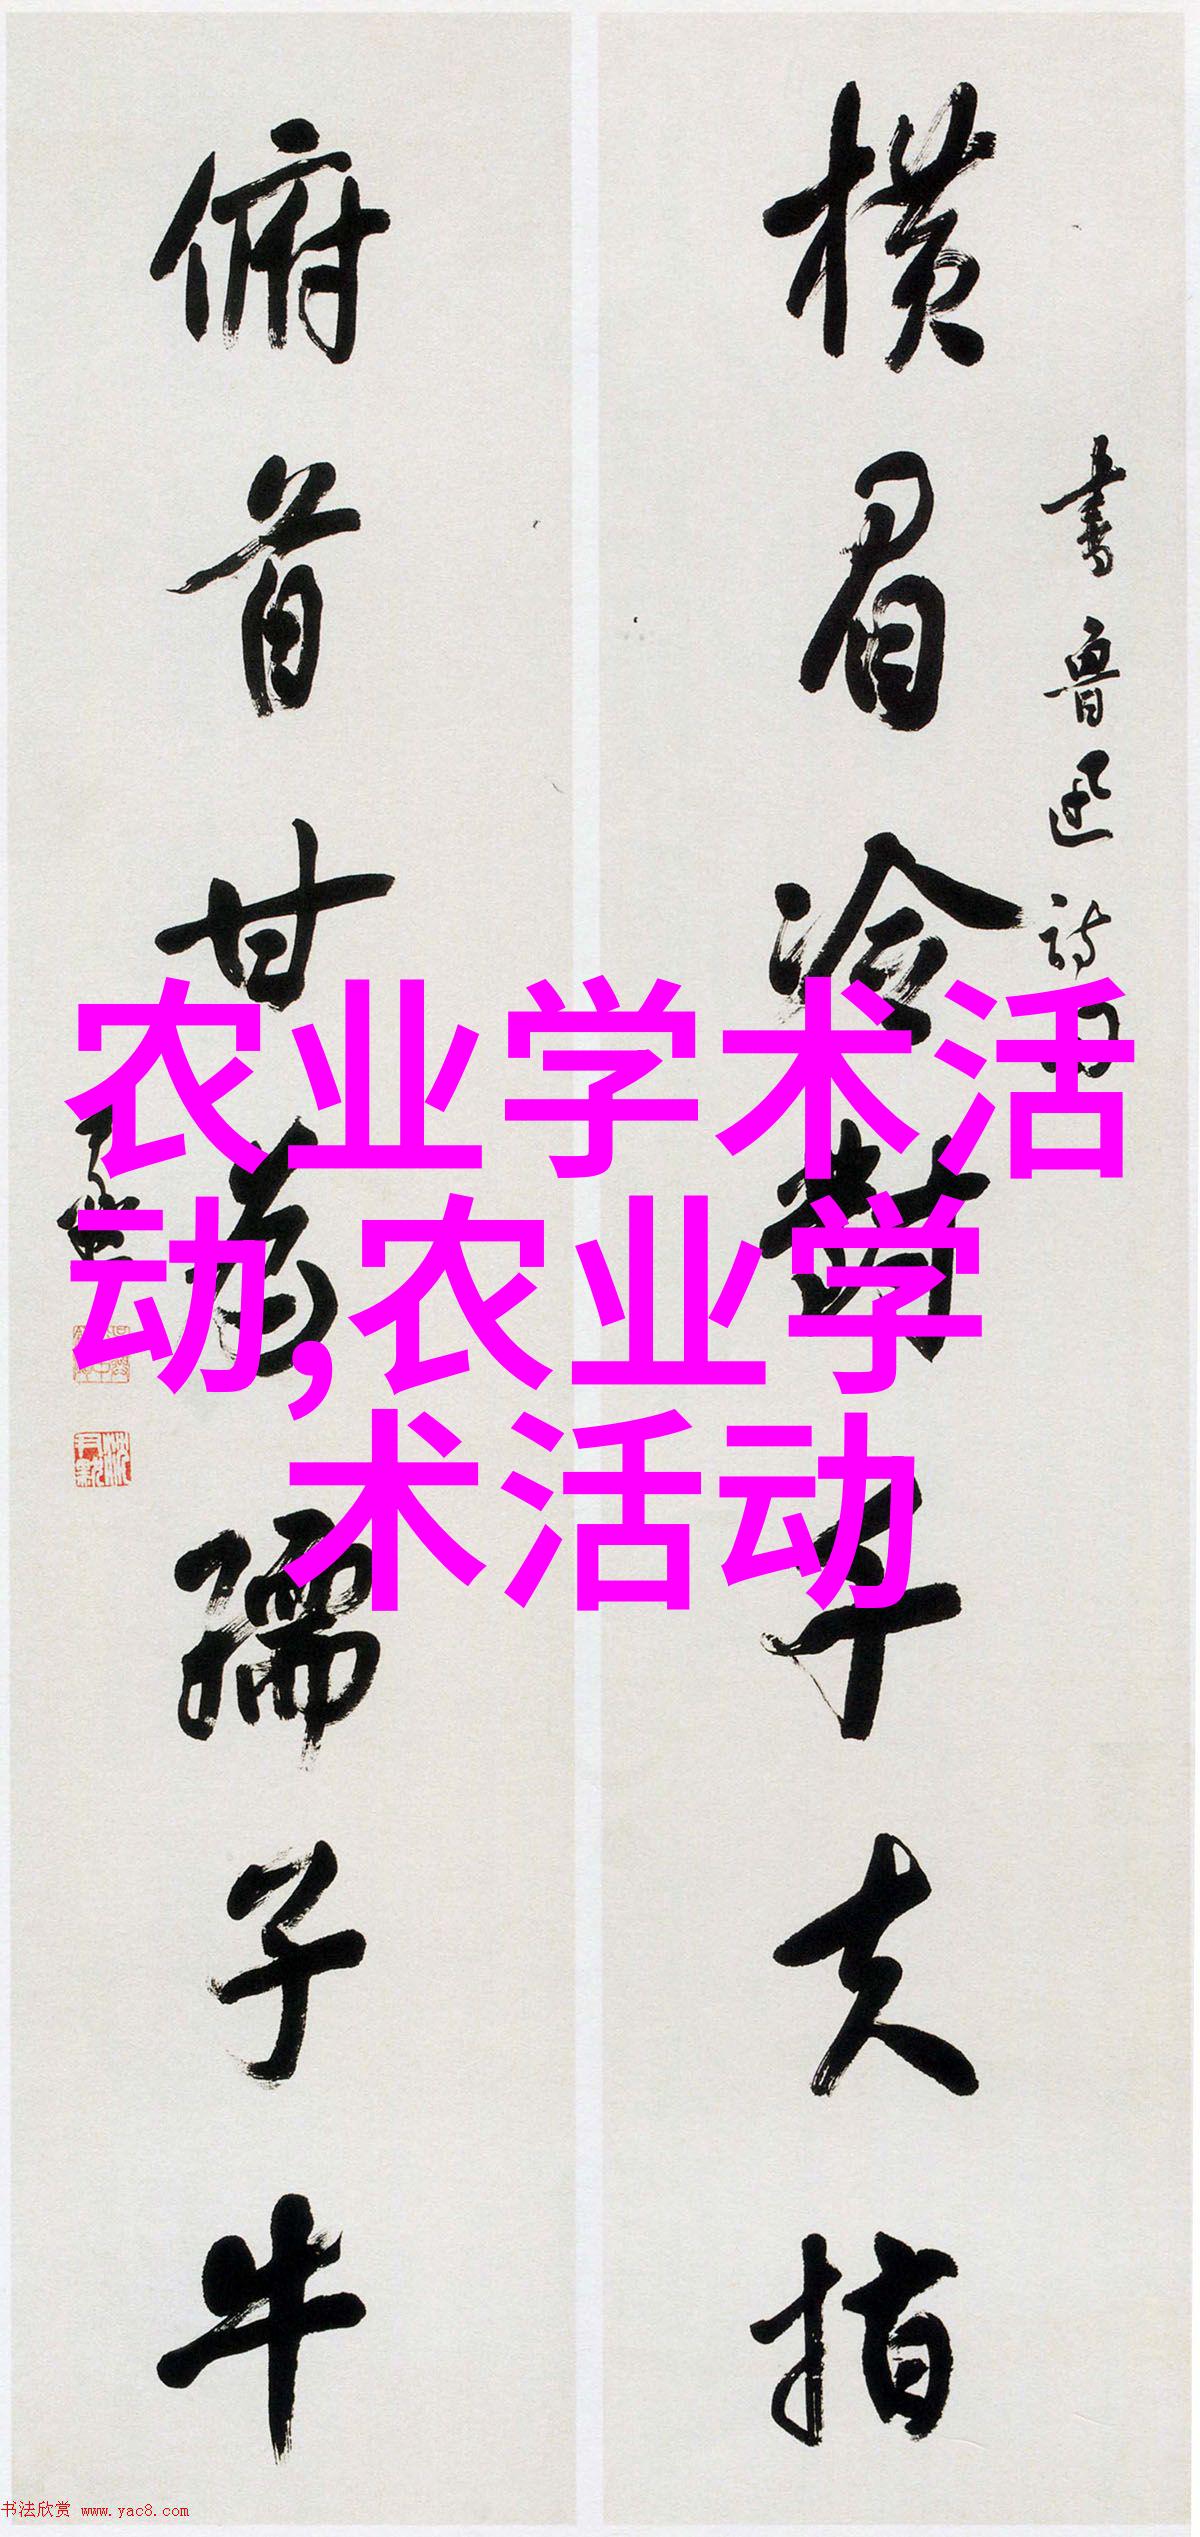 书鲁迅诗句
横眉冷对千夫指
俯首甘为孺子牛
尹默
沈尹默
农业学术活
动,农业学
术活动
书法欣赏 www.yac8.com